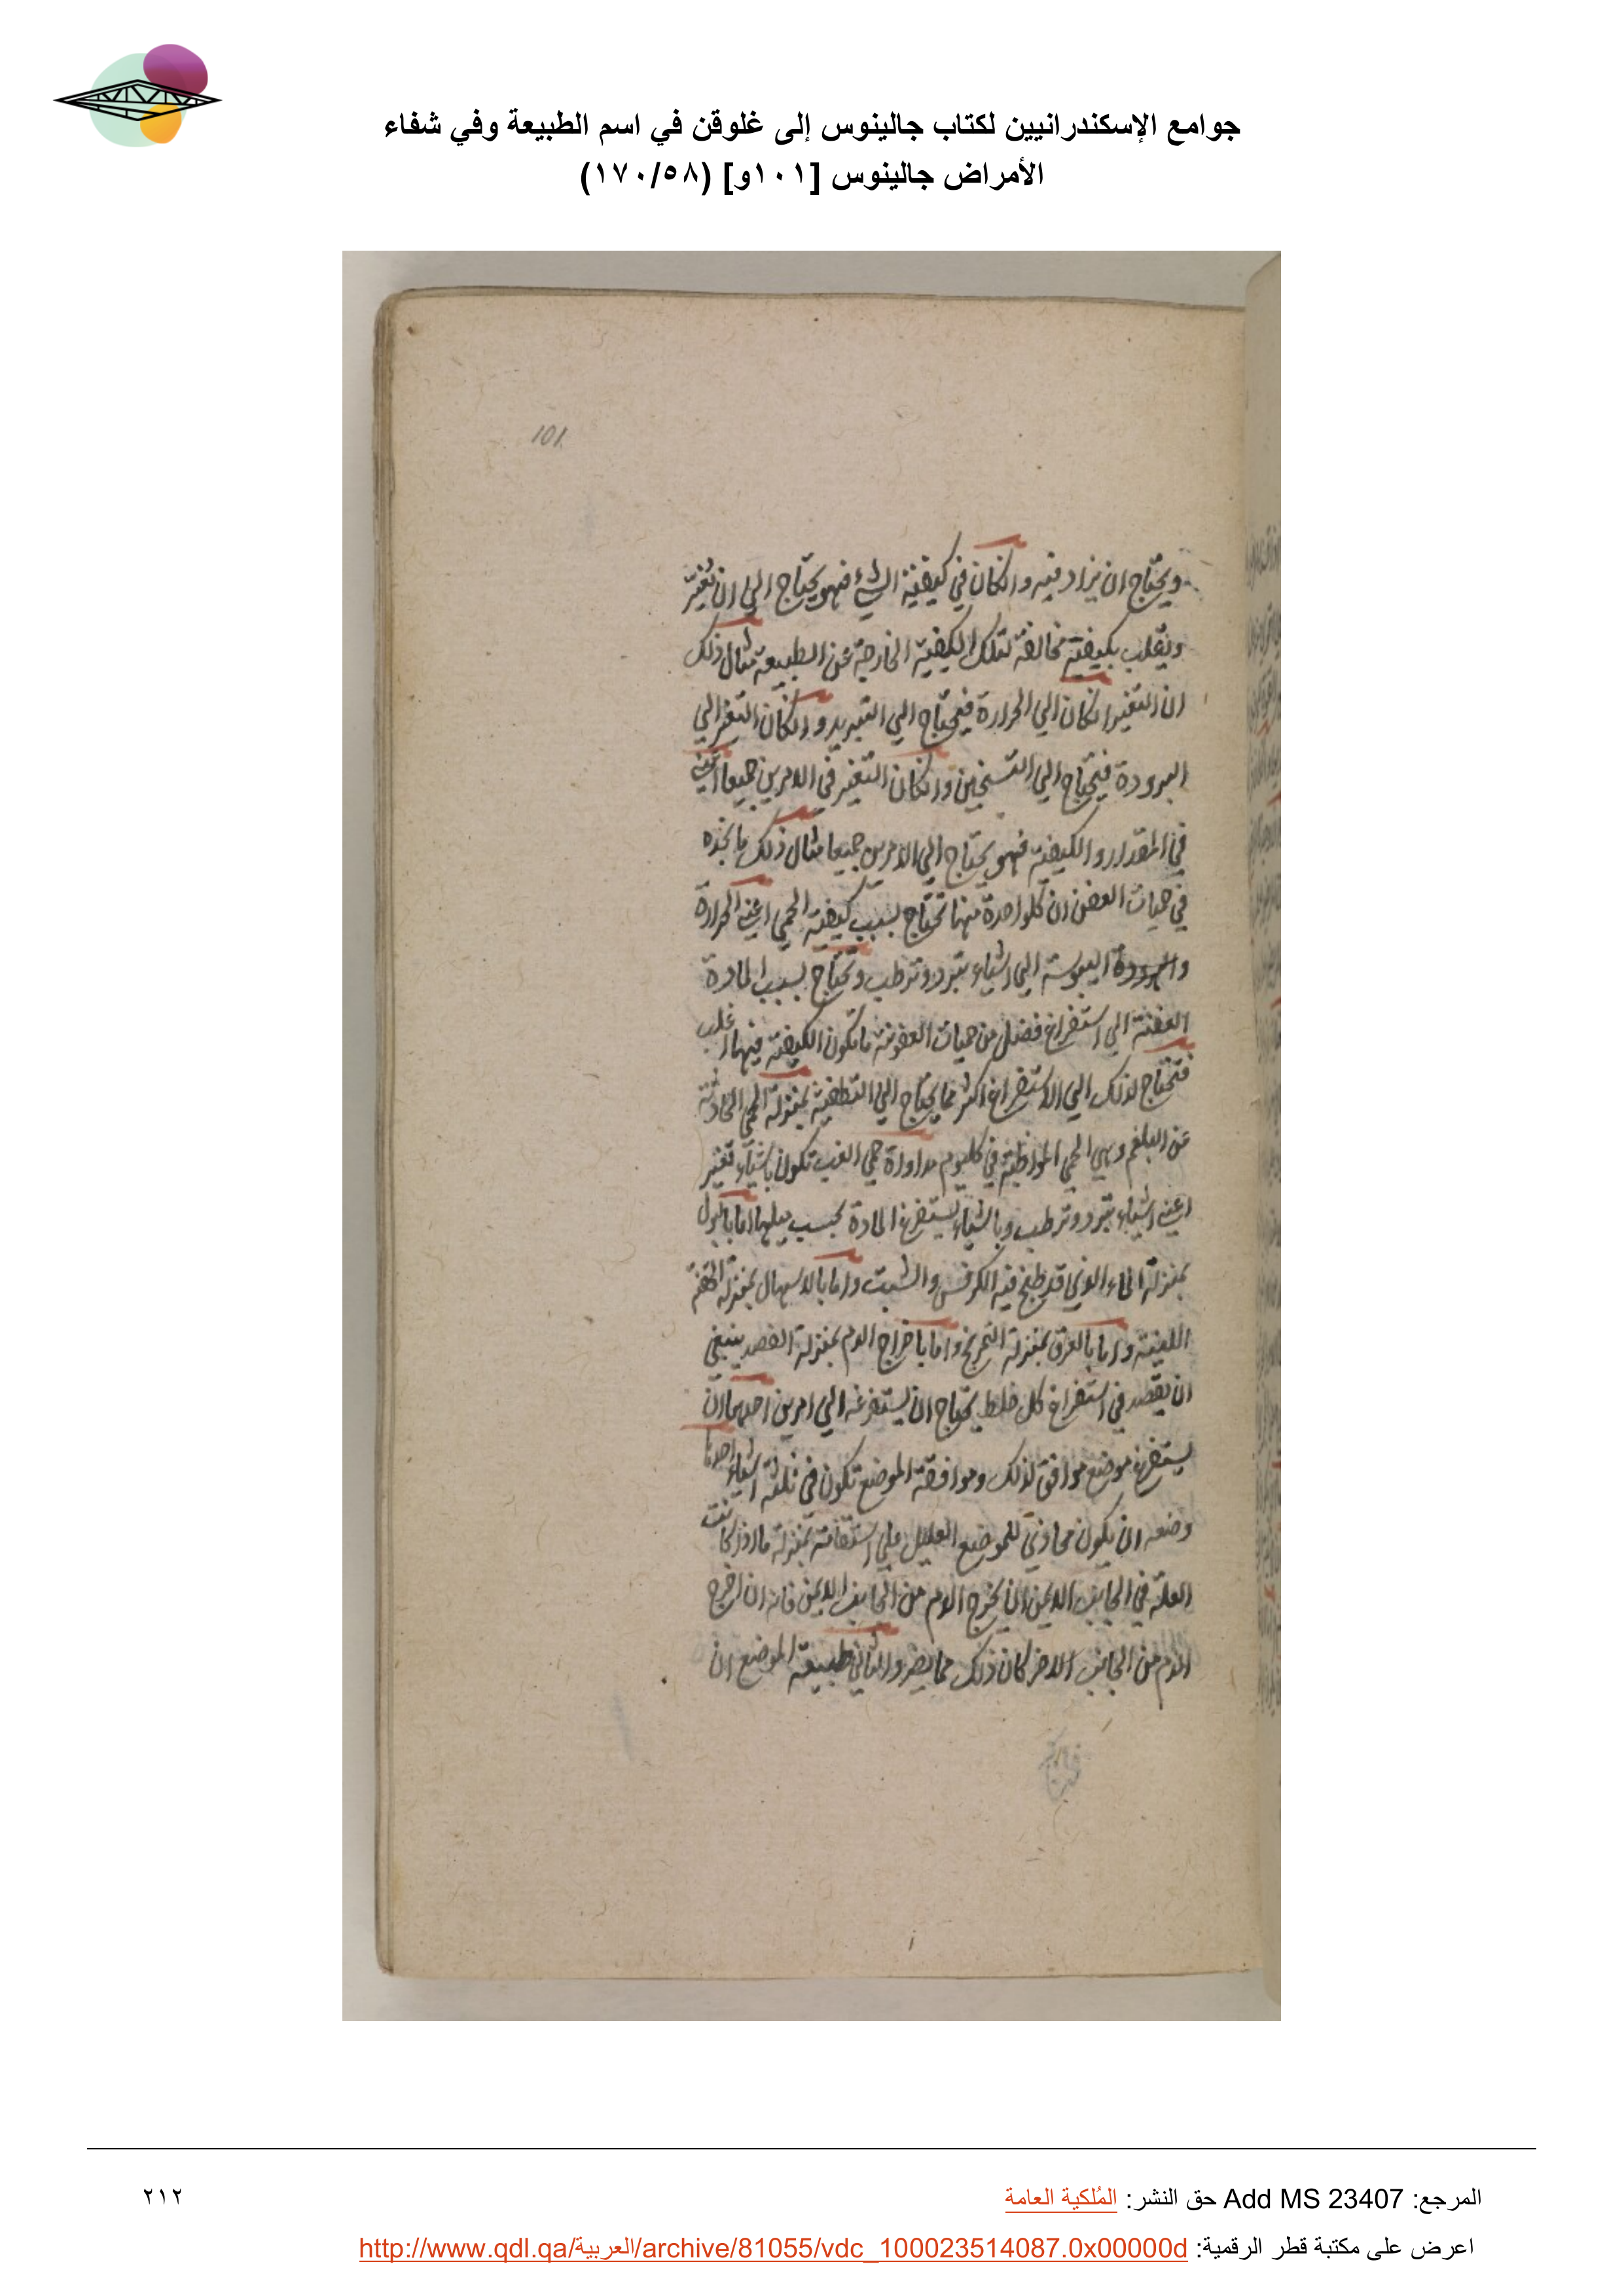 جوامع الإسكندرانيين لكتاب جالينوس إلى غلوقن في اسم الطبيعة وفي شفاء
الأمراض جالينوس [١٠١و] (١٧٠/٥٨)
101
ويحتاج ان يزاد فيه وانكان في كيفيته الشيء فهو يحتاج الي ان تغير
وتقلب بكيفية مخالفة لتلك الكيفية الخارجة عن الطبيعة مثال ذلك
ان التغير انكان الي الحرارة فيحتاج الي التبريد وانكان التغير الي
البرودة فيحتاج الي التسخين وانكان التغير في الامرين جميعا اعني
في المقدار والكيفية فهو يحتاج الي الامرين جميعا مثال ذلك ما نجده
في حميات العفن ان كلواحدة منها تحتاج بسبب كيفية الحمي اعني الحرارة
اليبوسة الي اشياء تبرد وترطب وتحتاج بسبب المادة
العفنة الي استفراغ فضل من حميات العفونة ما تكون الكيفية فيها اغلب
فتحتاج لذلك الي الاستفراغ اكثر مما يحتاج الي التطفية بمنزلة الحمي الحادثة
عن البلغم وهي الحمي المواظبة في كليوم مداواة حمي الغب تكون باشياء تغير
اعني اشياء تبرد وترطب وباشياء يستفرغ المادة بحسب ميلها اما بالبول
بمنزلة الماء الذي قد طبخ فيه الكرفس والشبت واما بالاسهال بمنزلة الحقنة
اللينة واما بالعرق بمنزلة التمريخ واما باخراج الدم بمنزلة الفصد ينبغي
ان يقصد في استفراغ كل خلط يحتاج ان يستفرغه الي امرين احدهما ان
يستفرغ موضع موافق لذلك وموافقة الموضع تكون في ثلثة اشياء احدها
وضعه ان يكون محاذي للموضع العليل علي استقامة بمنزلة ما اذا كانت
العلة في الجانب الايمن ان يخرج الدم من الجانب الايمن فانه ان اخرج
الدم من الجانب الاخر كان ذلك مما يضر والثاني طبيعة الموضع ان
المرجع: Add MS 23407 حق النشر: المُلكية العامة
٢١٢
اعرض على مكتبة قطر الرقمية: http://www.qdl.qa/العربية/archive/81055/vdc_100023514087.0x00000d